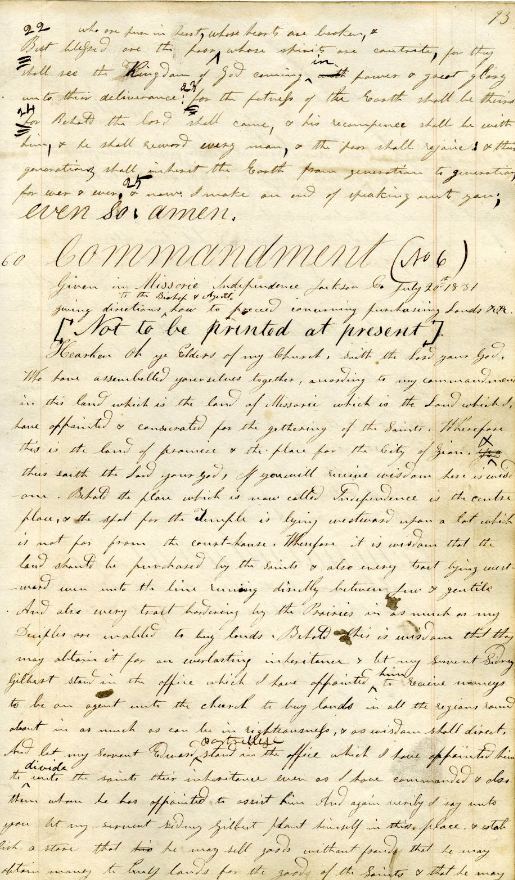 93
22 who are pure in heart, whose hearts are broken, &
But blessed are the poor, whose spirits are contrite, for they
shall see the Kingdom of God coming in power & great glory
unto their deliverance; 23 for the fatness of the Earth shall be theirs
24 for Behold the Lord shall come, & his recompence shall be with
him, & he shall reward every man, & the poor shall rejoice & their
generations shall inherit the Earth from generation to generation,
for ever & ever, 25 & now I make an end of speaking unto you;
even so. amen.
60 Commandment (No 6)
Given in Missorie Independence Jackson Co July 20th 1831
to the Bishop & Agents
giving directions how to proceed concerning purchasing Lands &c &c.
[Not to be printed at present]
Hearken Oh ye Elders of my Church, saith the Lord your God,
Who have assembelled yourselves together, according to my commandments
in this land which is the land of Missorie which is the Land which I
have appointed & consecrated for the gethering of the Saints. Wherefore
this is the land of promice & the place for the City of Zion.
thus saith the Lord your God, If you will receive wisdom here is wisd
om. Behold the place which is now called Independence is the centre
place, & the spot for the Temple is lying westward upon a lot which
is not far from the court-house. Wherefore it is wisdom that the
land should be purchased by the Saints & also every tract lying west
ward even unto the line runing directly between jew & gentile
And also every tract bordering by the Prairies in as much as my
Deciples are enabled to buy lands. Behold this is wisdom that they
may obtain it for an everlasting inheritance & let my servent Sidney
Gilbert stand in the office which I have appointed him to receive moneys
to be an agent unto the church to buy lands in all the regions round
about in as much as can be in righteousness, & as wisdom shall direct.
And let my servent Edward stand in the office which I have appointed him
to divide unto the saints their inheritance even as I have commanded & also
them whom he has appointed to assist him And again verily I say unto
you let my servent Sidney Gilbert plant himself in this place, & estab
lish a store that he may sell goods without fraud that he may
obtain money to buy lands for the good of the Saints & that he may